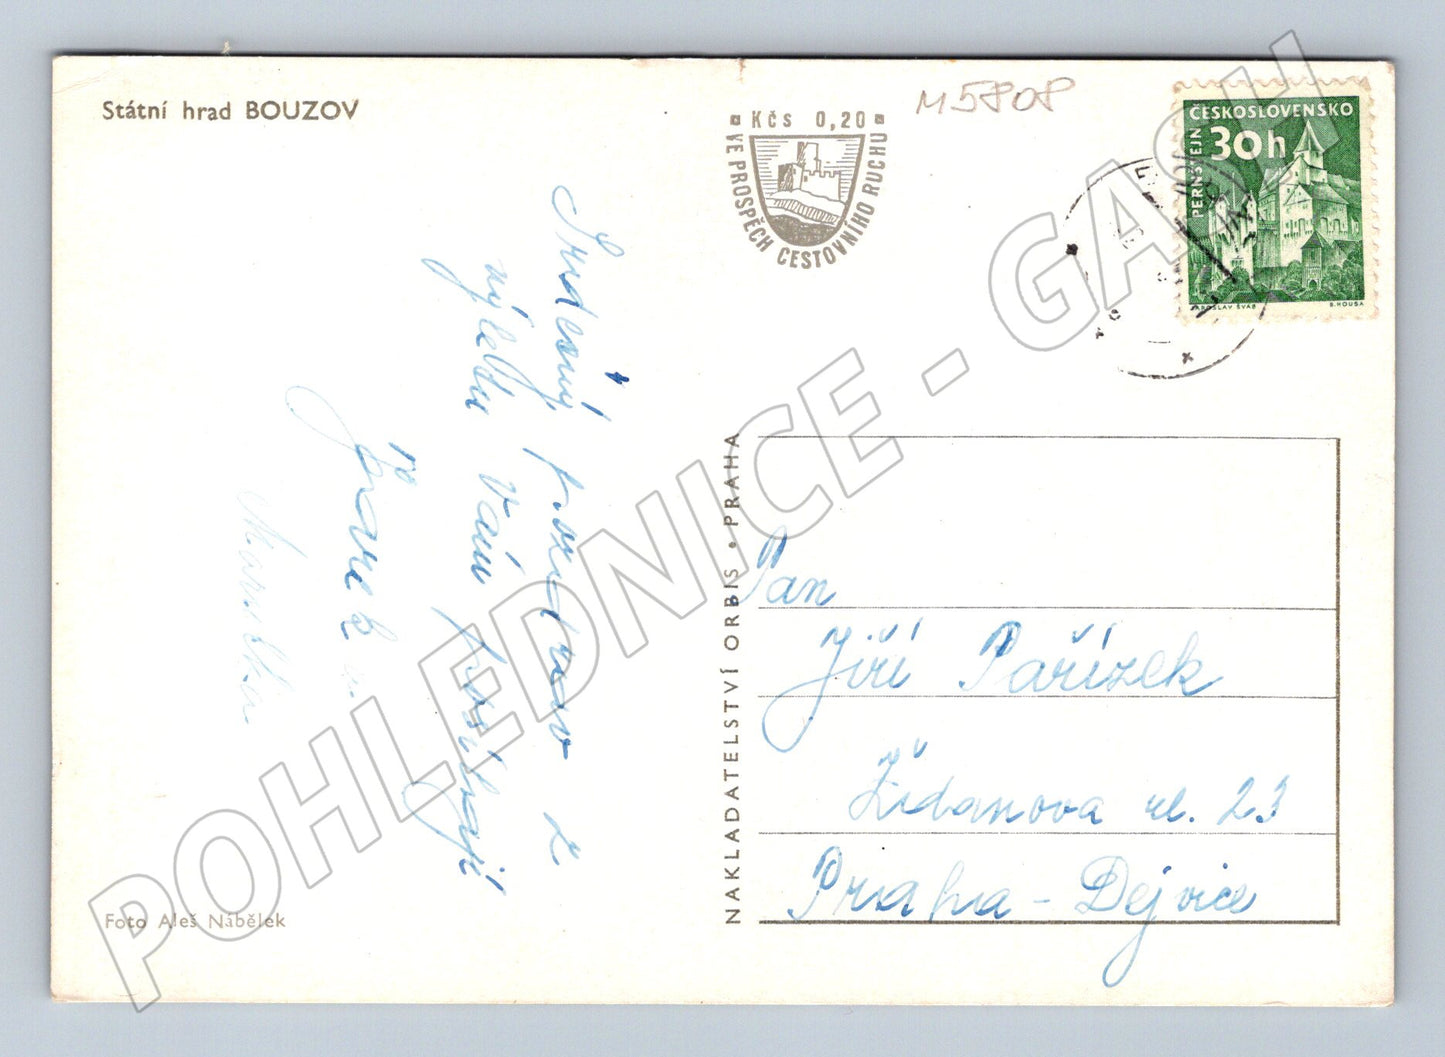 Státní hrad BOUZOV
Kčs 0,20
VE PROSPĚCH CESTOVNÍHO RUCHU
M5808
ČESKOSLOVENSKO
30h
PERNŠTEJN
JAROSLAV ŠVÁB
B. HOUSA
Srdečný pozdrav z
výletu Vám posílají
Jarek a
Maruška
NAKLADATELSTVÍ ORBIS • PRAHA
Pan
Jiří Pařízek
Židanova ul. 23
Praha - Dejvice
Foto Aleš Nábělek
POHLEDNICE - GASH